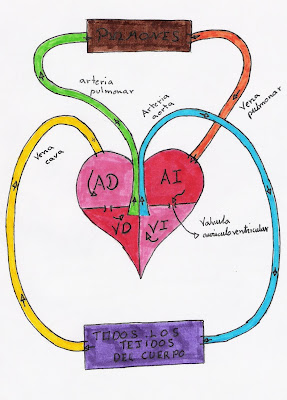 PULMONES
arteria
pulmonar
Arteria
aorta
Vena
pulmonar
Vena
cava
AD
AI
VD
VI
Valvula
auriculoventricular
TODOS LOS
TEJIDOS
DEL CUERPO